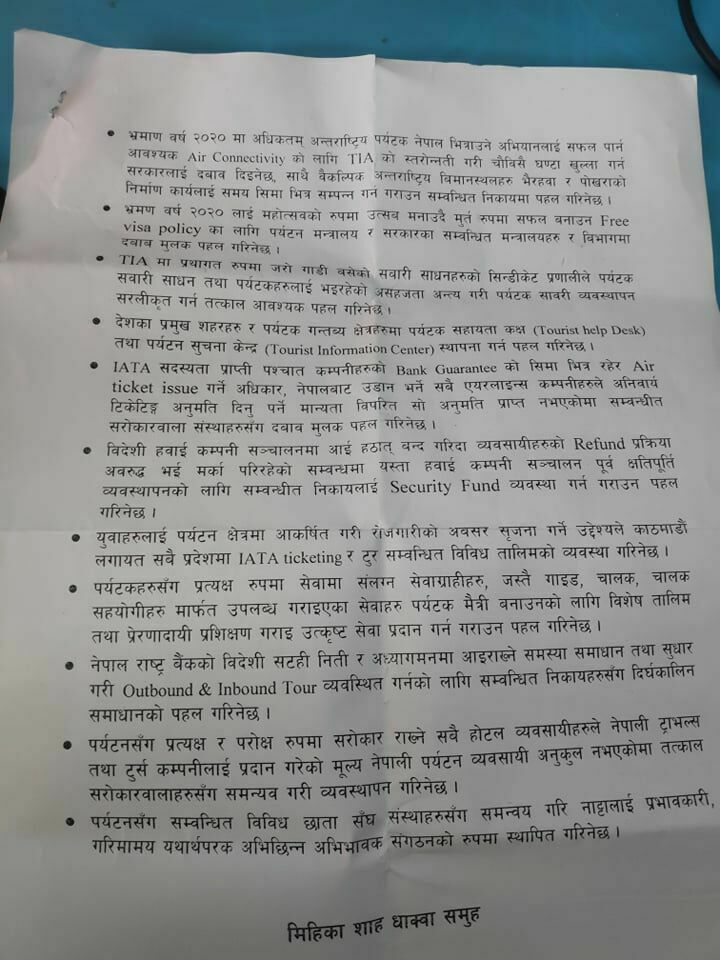 • भ्रमाण वर्ष २०२० मा अधिकतम् अन्तराष्ट्रिय पर्यटक नेपाल भित्राउने अभियानलाई सफल पार्न
आवश्यक Air Connectivity को लागि TIA को स्तरोन्नती गरी चौविसै घण्टा खुल्ला गर्न
सरकारलाई दबाव दिइनेछ, साथै वैकल्पिक अन्तराष्ट्रिय बिमानस्थलहरु भैरहवा र पोखराको
निर्माण कार्यलाई समय सिमा भित्र सम्पन्न गर्न गराउन सम्वन्धित निकायमा पहल गरिनेछ ।
• भ्रमण वर्ष २०२० लाई महोत्सवको रुपमा उत्सव मनाउदै मुर्त रुपमा सफल बनाउन Free
visa policy का लागि पर्यटन मन्त्रालय र सरकारका सम्वन्धित मन्त्रालयहरु र बिभागमा
दबाब मुलक पहल गरिनेछ ।
• TIA मा प्रथागत रुपमा जरो गाडी बसेको सवारी साधनहरुको सिन्डीकेट प्रणालीले पर्यटक
सवारी साधन तथा पर्यटकहरुलाई भइरहेको असहजता अन्त्य गरी पर्यटक सावरी व्यवस्थापन
सरलीकृत गर्न तत्काल आवश्यक पहल गरिनेछ ।
• देशका प्रमुख शहरहरु र पर्यटक गन्तब्य क्षेत्रहरुमा पर्यटक सहायता कक्ष (Tourist help Desk)
तथा पर्यटन सुचना केन्द्र (Tourist Information Center) स्थापना गर्न पहल गरिनेछ ।
• IATA सदस्यता प्राप्ती पश्चात कम्पनीहरुको Bank Guarantee को सिमा भित्र रहेर Air
ticket issue गर्ने अधिकार, नेपालबाट उडान भर्ने सबै एयरलाइन्स कम्पनीहरुले अनिवार्य
टिकेटिङ्ग अनुमति दिनु पर्ने मान्यता विपरित सो अनुमति प्राप्त नभएकोमा सम्वन्धीत
सरोकारवाला संस्थाहरुसंग दबाव मुलक पहल गरिनेछ ।
• विदेशी हवाई कम्पनी सञ्चालनमा आई हठात् बन्द गरिदा व्यवसायीहरुको Refund प्रक्रिया
अवरुद्ध भई मर्का परिरहेको सम्वन्धमा यस्ता हवाई कम्पनी सञ्चालन पूर्व क्षतिपूर्ति
व्यवस्थापनको लागि सम्वन्धीत निकायलाई Security Fund व्यवस्था गर्न गराउन पहल
गरिनेछ ।
• युवाहरुलाई पर्यटन क्षेत्रमा आकर्षित गरी रोजगारीको अवसर सृजना गर्ने उद्देश्यले काठमाडौं
लगायत सबै प्रदेशमा IATA ticketing र टुर सम्वन्धित विविध तालिमको व्यवस्था गरिनेछ ।
• पर्यटकहरुसँग प्रत्यक्ष रुपमा सेवामा संलग्न सेवाग्राहीहरु, जस्तै गाइड, चालक, चालक
सहयोगीहरु मार्फत उपलब्ध गराइएका सेवाहरु पर्यटक मैत्री बनाउनको लागि विशेष तालिम
तथा प्रेरणादायी प्रशिक्षण गराइ उत्कृष्ट सेवा प्रदान गर्न गराउन पहल गरिनेछ ।
• नेपाल राष्ट्र बैंकको विदेशी सटही निती र अध्यागमनमा आइराख्ने समस्या समाधान तथा सुधार
गरी Outbound & Inbound Tour व्यवस्थित गर्नको लागि सम्वन्धित निकायहरुसँग दिर्घकालिन
समाधानको पहल गरिनेछ ।
• पर्यटनसँग प्रत्यक्ष र परोक्ष रुपमा सरोकार राख्ने सबै होटल व्यवसायीहरुले नेपाली ट्राभल्स
तथा टुर्स कम्पनीलाई प्रदान गरेको मूल्य नेपाली पर्यटन व्यवसायी अनुकुल नभएकोमा तत्काल
सरोकारवालाहरुसँग समन्यव गरी व्यवस्थापन गरिनेछ ।
• पर्यटनसँग सम्वन्धित विविध छाता सँघ संस्थाहरुसँग समन्वय गरि नाट्टालाई प्रभावकारी,
गरिमामय यथार्थपरक अभिछिन्न अभिभावक संगठनको रुपमा स्थापित गरिनेछ ।
मिहिका शाह धाक्वा समुह